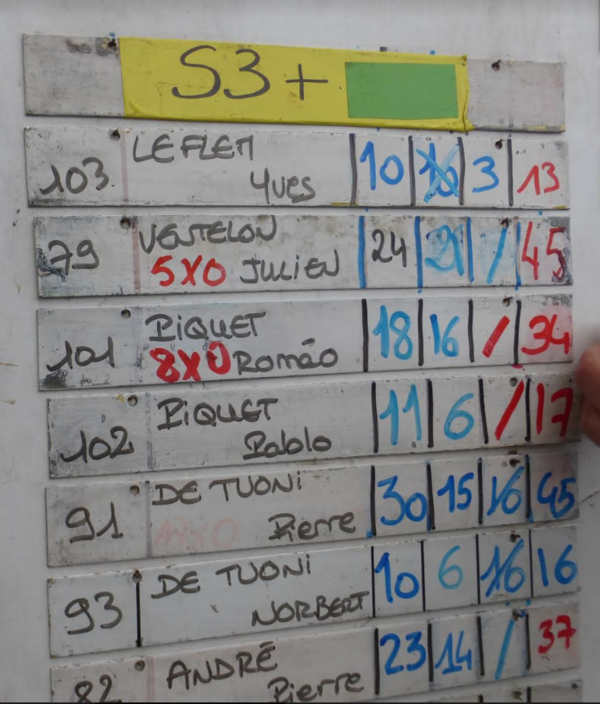 S3+
103 LEFLEM Yves 10 3 13
79 VENTELON 5X0 JULIEN 24 21 / 45
101 PIQUET 8X0 Roméo 18 16 / 34
102 PIQUET Pablo 11 6 / 17
91 DE TUONI Pierre 30 15 16 45
93 DE TUONI NORBERT 10 6 16 16
82 ANDRÉ Pierre 23 14 / 37